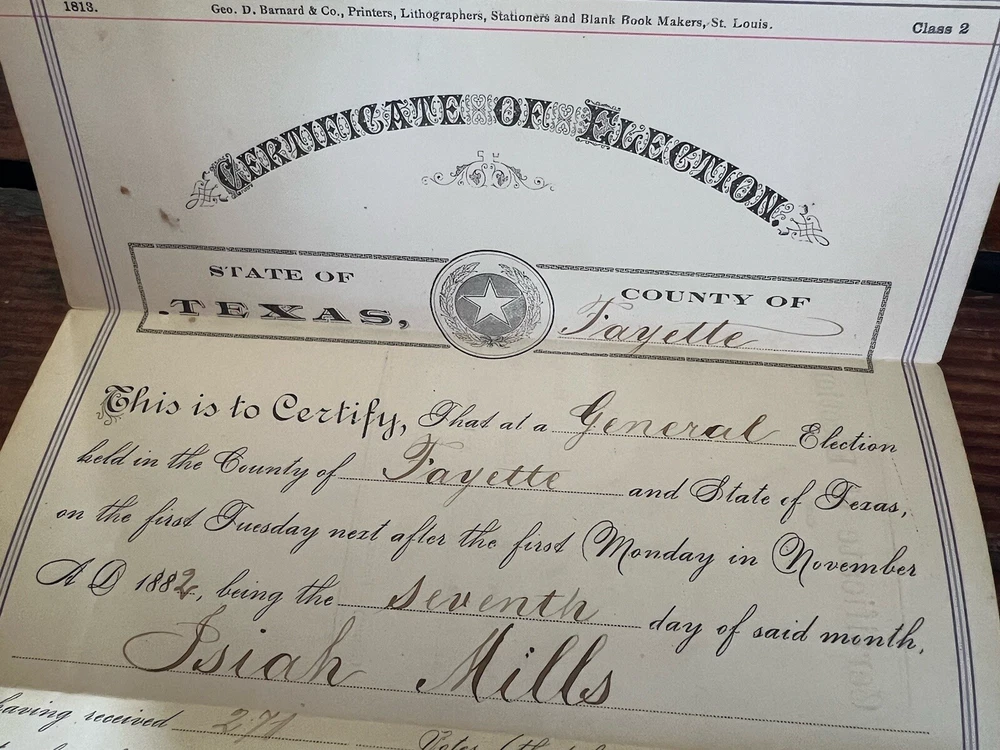 1813.
Geo. D. Barnard & Co., Printers, Lithographers, Stationers and Blank Book Makers, St. Louis.
Class 2
CERTIFICATE OF ELECTION.
STATE OF
TEXAS,
COUNTY OF
Fayette
This is to Certify, That at a General Election
held in the County of Fayette and State of Texas,
on the first Tuesday next after the first Monday in November
A D 1882, being the seventh day of said month,
Isiah Mills
having received Votes of the